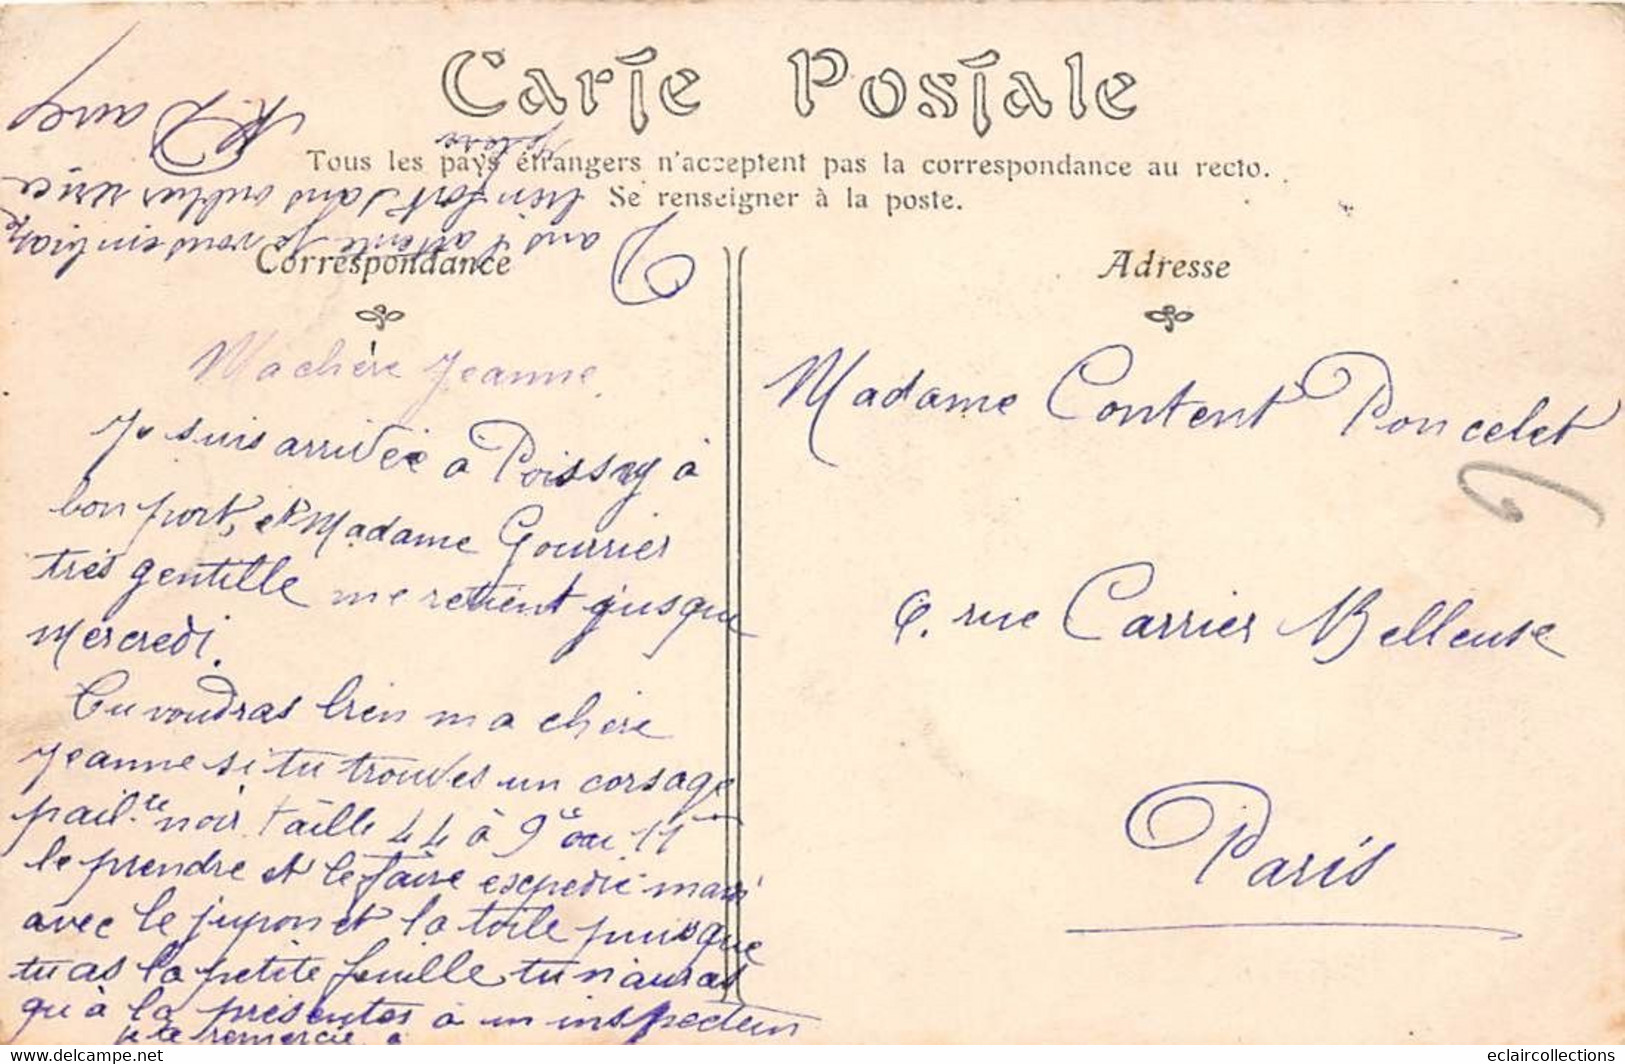 Carte Postale
Tous les pays étrangers n'acceptent pas la correspondance au recto.
Se renseigner à la poste.
Correspondance
Adresse
Ma chère Jeanne
Je suis arrivée à Poissy à
bon port, et Madame Gourrier
très gentille me retient jusque
Mercredi.
Tu voudras bien ma chère
Jeanne si tu trouves un corsage
pail.te noir taille 44 à 9 ou 11
le prendre et le faire expedié
avec le jupon et la toile puisque
tu as la petite feuille tu n'auras
qu'à la présenter à un inspecteur
je te remercie à
l'attente je vous embrasse
bien fort sans oublier
Madame Content Poncelet
6. rue Carrier Belleuse
Paris
eclaircollections